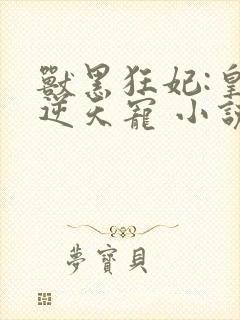 獸黑狂妃:皇
逆天寵 小說
夢寶貝